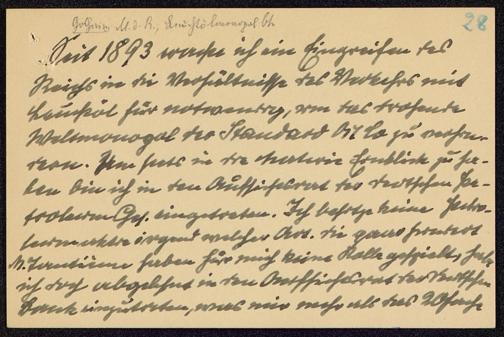 Gothein, M. d. R., Leuchtölmonopol Bl. 28
Seit 1893 wachte ich ein Eingreifen des
Reichs in die Verhältnisse des Verkehrs mit
Leuchtöl für notwendig, um das drohende
Weltmonopol der Standard Oil Co zu verhin-
dern. Um stets in die Materie Einblick zu ha-
ben bin ich in den Aufsichtsrat der deutschen Pe-
troleum Ges. eingetreten. Ich besitze keine Petro-
leumaktie irgend welcher Art. die paar hundert
M. Tantieme haben für mich keine Rolle gespielt, habe
ich doch abgelehnt in den Aufsichtsrat der Deutschen
Bank einzutreten, was mir mehr als das 20fache